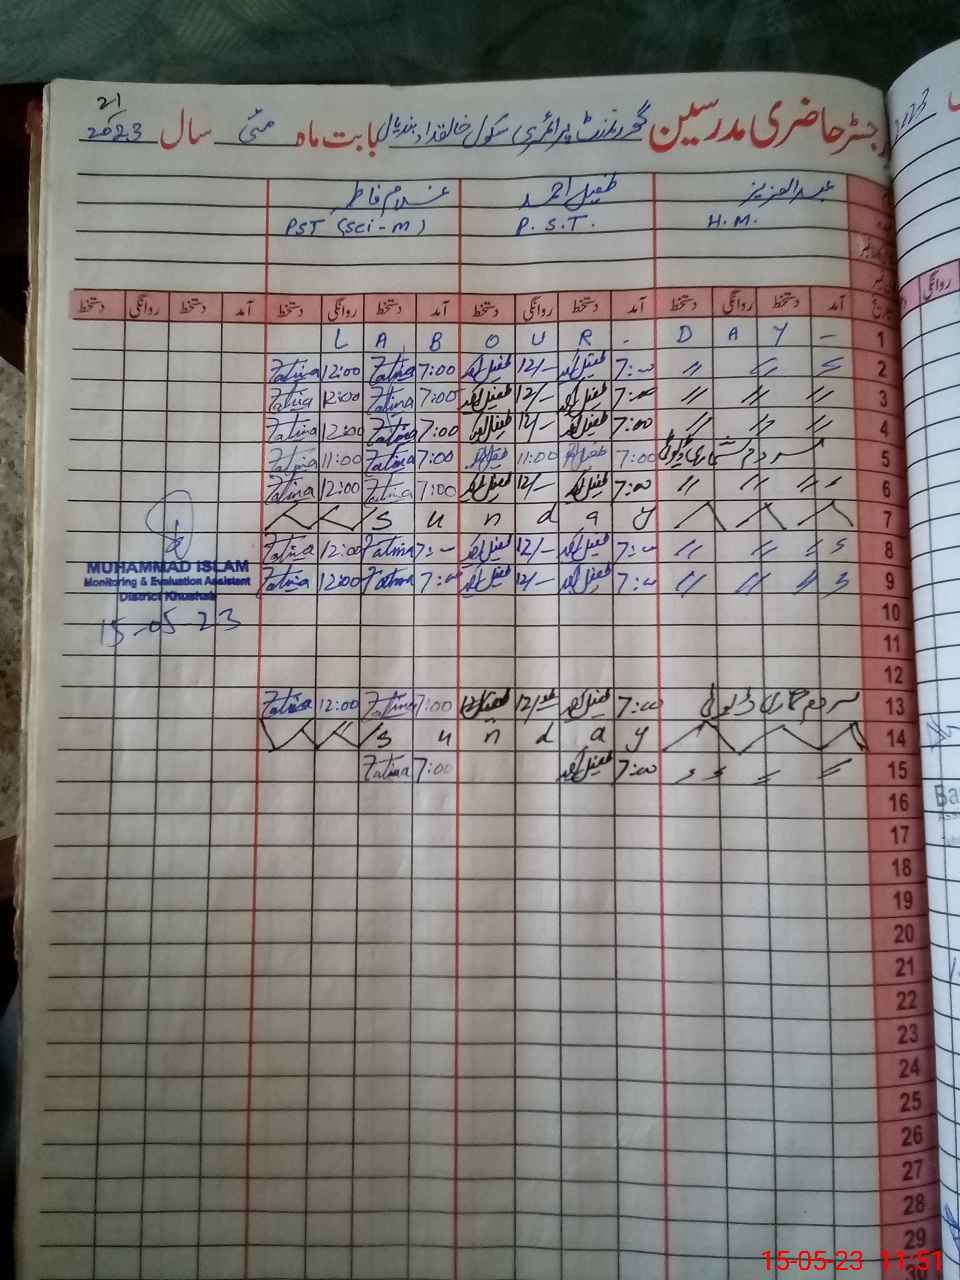 21
رجسٹر حاضری مدرسین گورنمنٹ پرائمری سکول خالقداد بندیال بابت ماہ مئی سال 2023
عبدالعزیز طفیل احمد غلام فاطمہ
H.M. P.S.T. PST (Sci-m)
آمد دستخط روانگی دستخط آمد دستخط روانگی دستخط آمد دستخط روانگی دستخط آمد دستخط روانگی دستخط
L A B O U R - D A Y - 1
Fatima 12:00 Fatima 7:00 طفیل احمد 12/- طفیل احمد 7:00 〃 〃 2
Fatima 12:00 Fatima 7:00 طفیل احمد 12/- طفیل احمد 7:00 〃 〃 〃 3
Fatima 12:00 Fatima 7:00 طفیل احمد 12/- طفیل احمد 7:00 〃 〃 〃 4
Fatima 11:00 Fatima 7:00 طفیل احمد 11:00 طفیل احمد 7:00 مردم شماری ڈیوٹی 5
Fatima 12:00 Fatima 7:00 طفیل احمد 12/- طفیل احمد 7:00 〃 〃 〃 6
S u n d a y 7
Fatima 12:00 Fatima 7:- طفیل احمد 12/- طفیل احمد 7:00 〃 〃 8
Fatima 12:00 Fatima 7:00 طفیل احمد 12/- طفیل احمد 7:00 〃 〃 〃 9
MUHAMMAD ISLAM
Monitoring & Evaluation Assistant
District Khushab
15-05-23
10
11
12
Fatima 12:00 Fatima 7:00 طفیل احمد 12/- طفیل احمد 7:00 مردم شماری ڈیوٹی 13
S u n d a y 14
Fatima 7:00 طفیل احمد 7:00 〃 〃 15
16
17
18
19
20
21
22
23
24
25
26
27
28
29
15-05-23 11:51